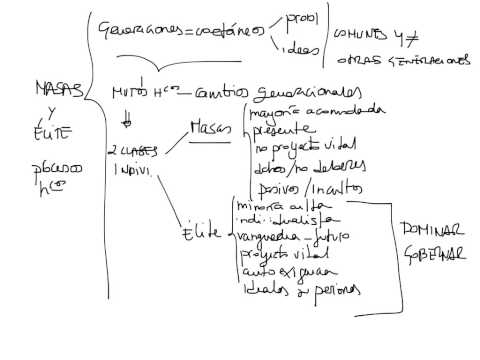 Generaciones = coetáneos
probl
ideas
COMUNES Y ≠
OTRAS GENERACIONES
MASAS
Y
ÉLITE
procesos
hcos
MVTOS Hcos — cambios generacionales
2 CLASES
INDIVI.
Masas
mayoría acomodada
presente
no proyecto vital
dchos / no deberes
pasivos / incultos
Élite
minoría culta
individualista
vanguardia – futuro
proyecto vital
auto exigencia
ideales
DOMINAR
GOBERNAR